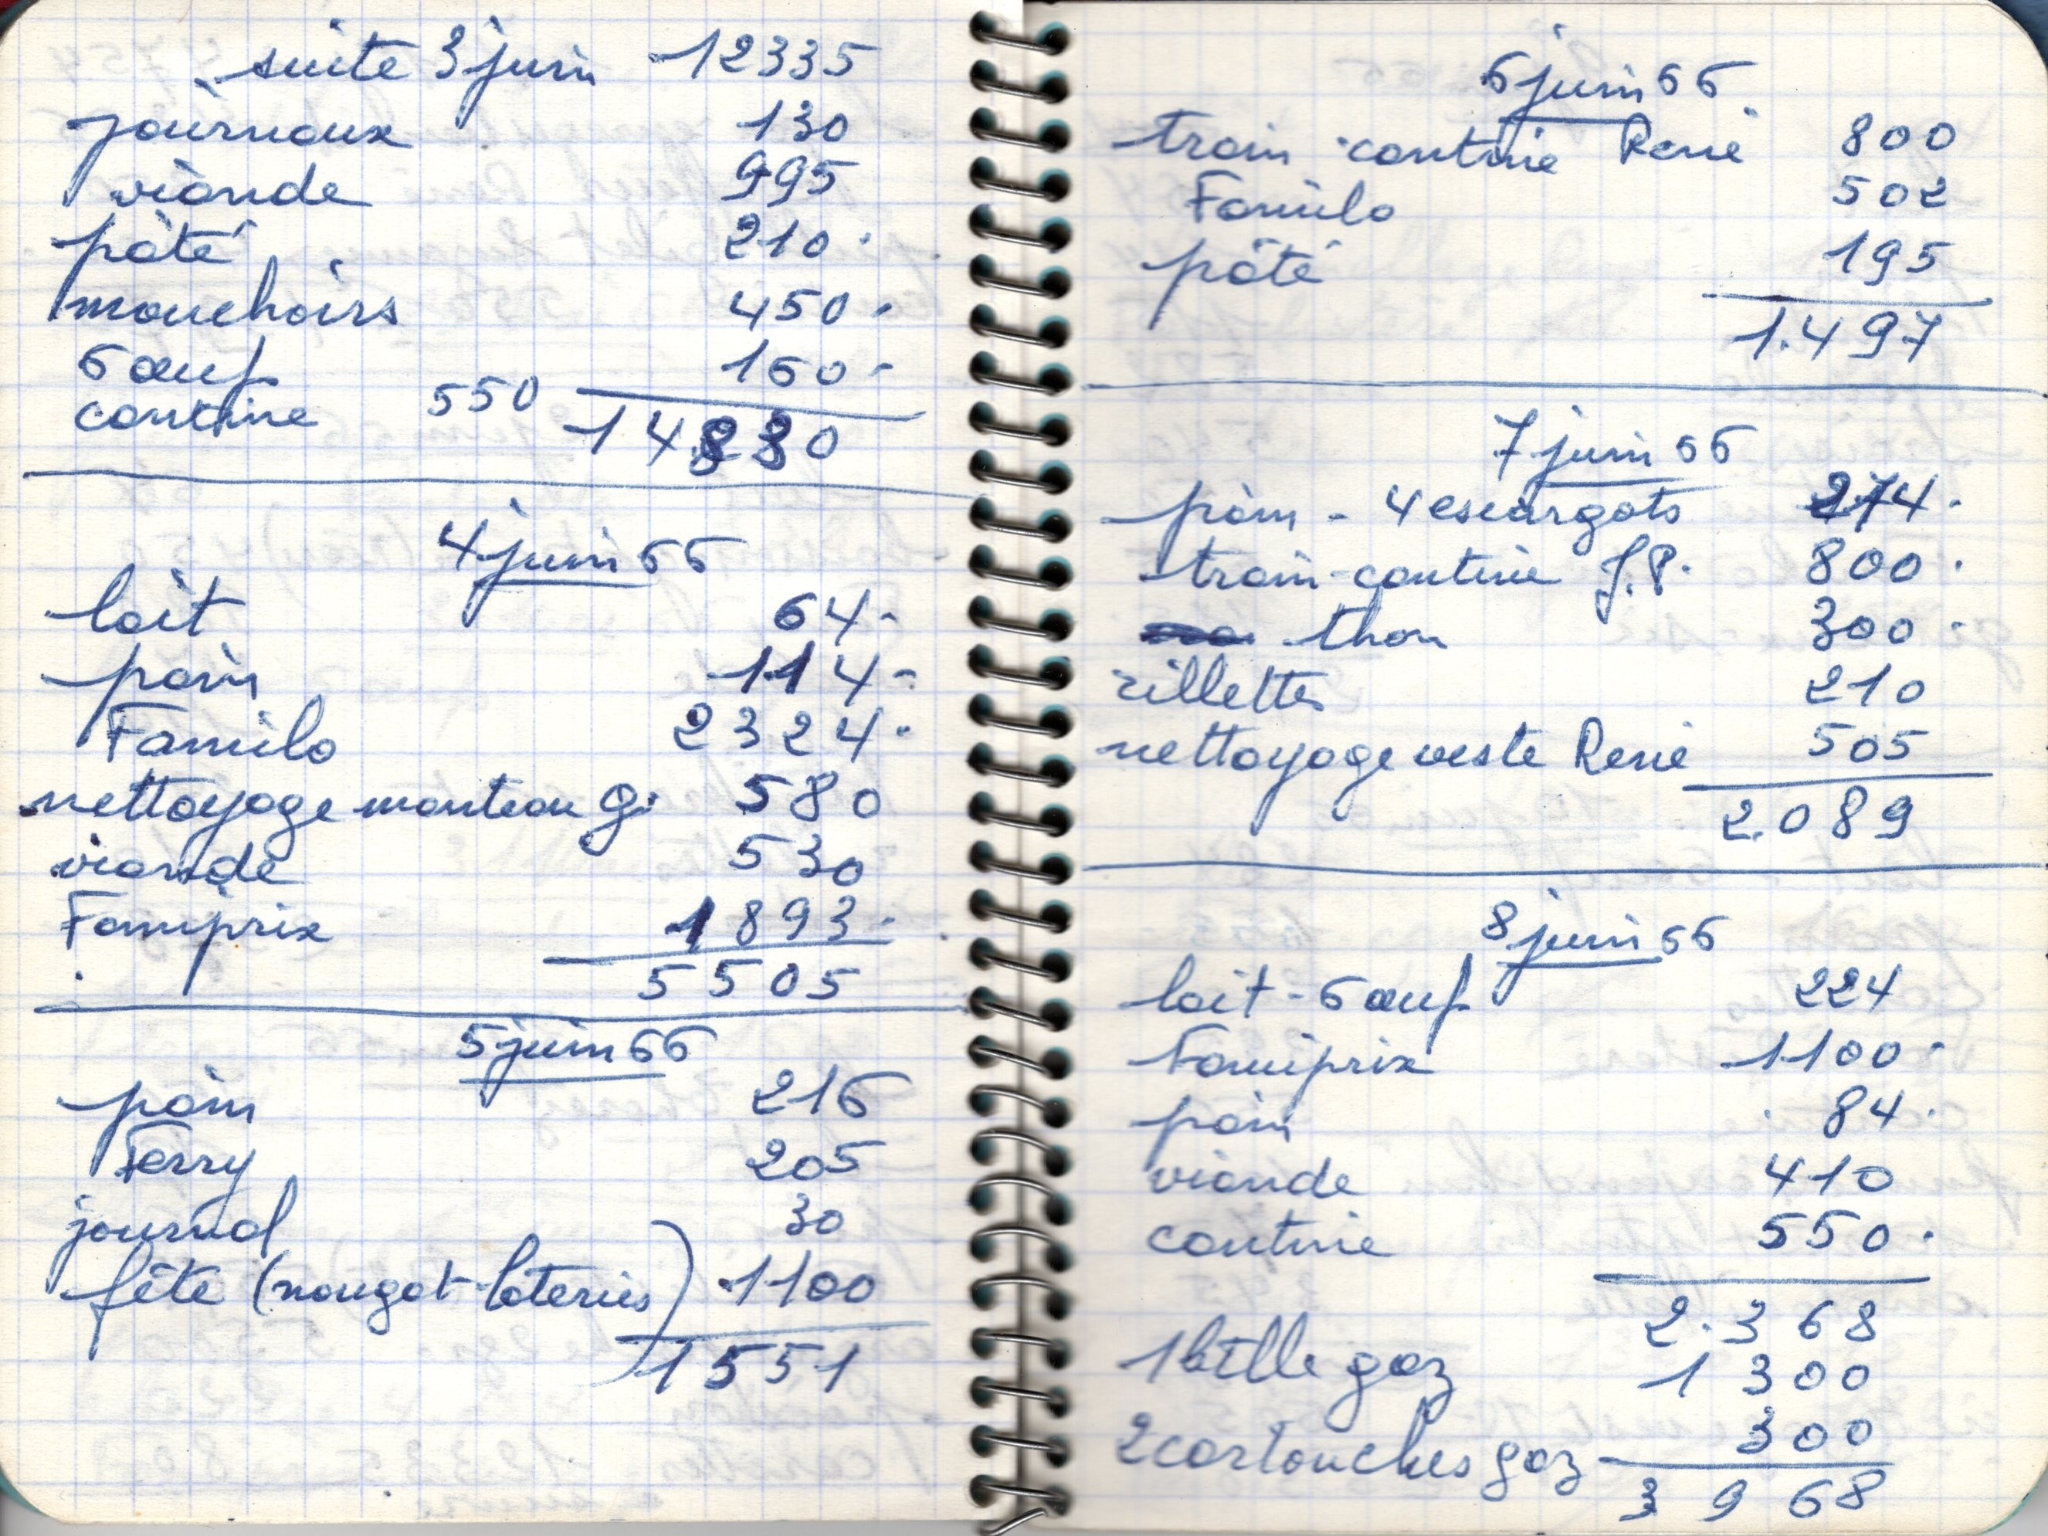 suite 3 juin 12335
journaux 130
viande 995
pâté 210
mouchoirs 450
6 œufs 160
cantine 550
14830
4 juin 66
lait 64
pain 114
Familo 2324
nettoyage manteau G. 580
viande 530
Famiprix 1893
5505
5 juin 66
pain 216
Ferry 205
journal 30
fête (nougat-loteries) 1100
1551
6 juin 66
train cantine René 800
Familo 502
pâté 195
1.497
7 juin 66
pain - 4 escargots 274
train-cantine J.P. 800
thon 300
rillettes 210
nettoyage veste René 505
2.089
8 juin 66
lait - 6 œufs 224
Famiprix 1100
pain 84
viande 410
cantine 550
2.368
1 btlle gaz 1300
2 cartouches gaz 300
3968